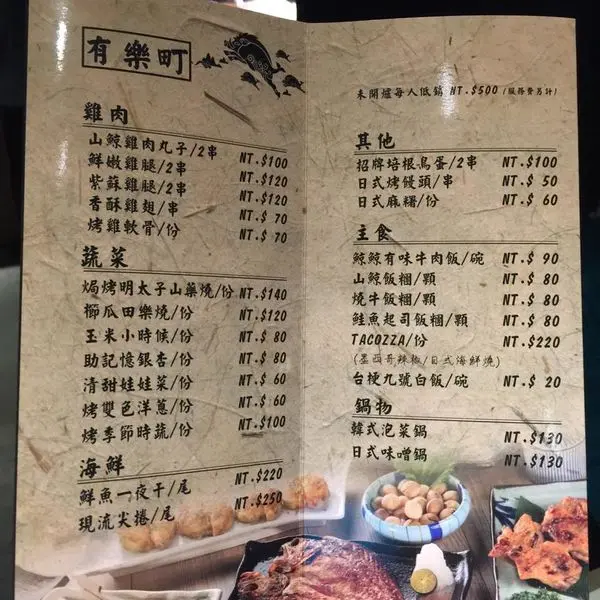 有樂町
雞肉
山鯨雞肉丸子/2串 NT.$100
鮮嫩雞腿/2串 NT.$120
紫蘇雞腿/2串 NT.$120
香酥雞翅/串 NT.$ 70
烤雞軟骨/份 NT.$ 70
蔬菜
焗烤明太子山藥燒/份 NT.$140
櫛瓜田樂燒/份 NT.$120
玉米小時候/份 NT.$ 80
助記憶銀杏/份 NT.$ 80
清甜娃娃菜/份 NT.$ 60
烤雙色洋蔥/份 NT.$ 60
烤季節時蔬/份 NT.$100
海鮮
鮮魚一夜干/尾 NT.$220
現流尖捲/尾 NT.$250
未開爐每人低銷 NT.$500 (服務費另計)
其他
招牌培根鳥蛋/2串 NT.$100
日式烤饅頭/串 NT.$ 50
日式麻糬/份 NT.$ 60
主食
鯨鯨有味牛肉飯/碗 NT.$ 90
山鯨飯糰/顆 NT.$ 80
燒牛飯糰/顆 NT.$ 80
鮭魚起司飯糰/顆 NT.$ 80
TACOZZA/份 NT.$220
(墨西哥辣椒/日式海鮮燒)
台梗九號白飯/碗 NT.$ 20
鍋物
韓式泡菜鍋 NT.$130
日式味噌鍋 NT.$130